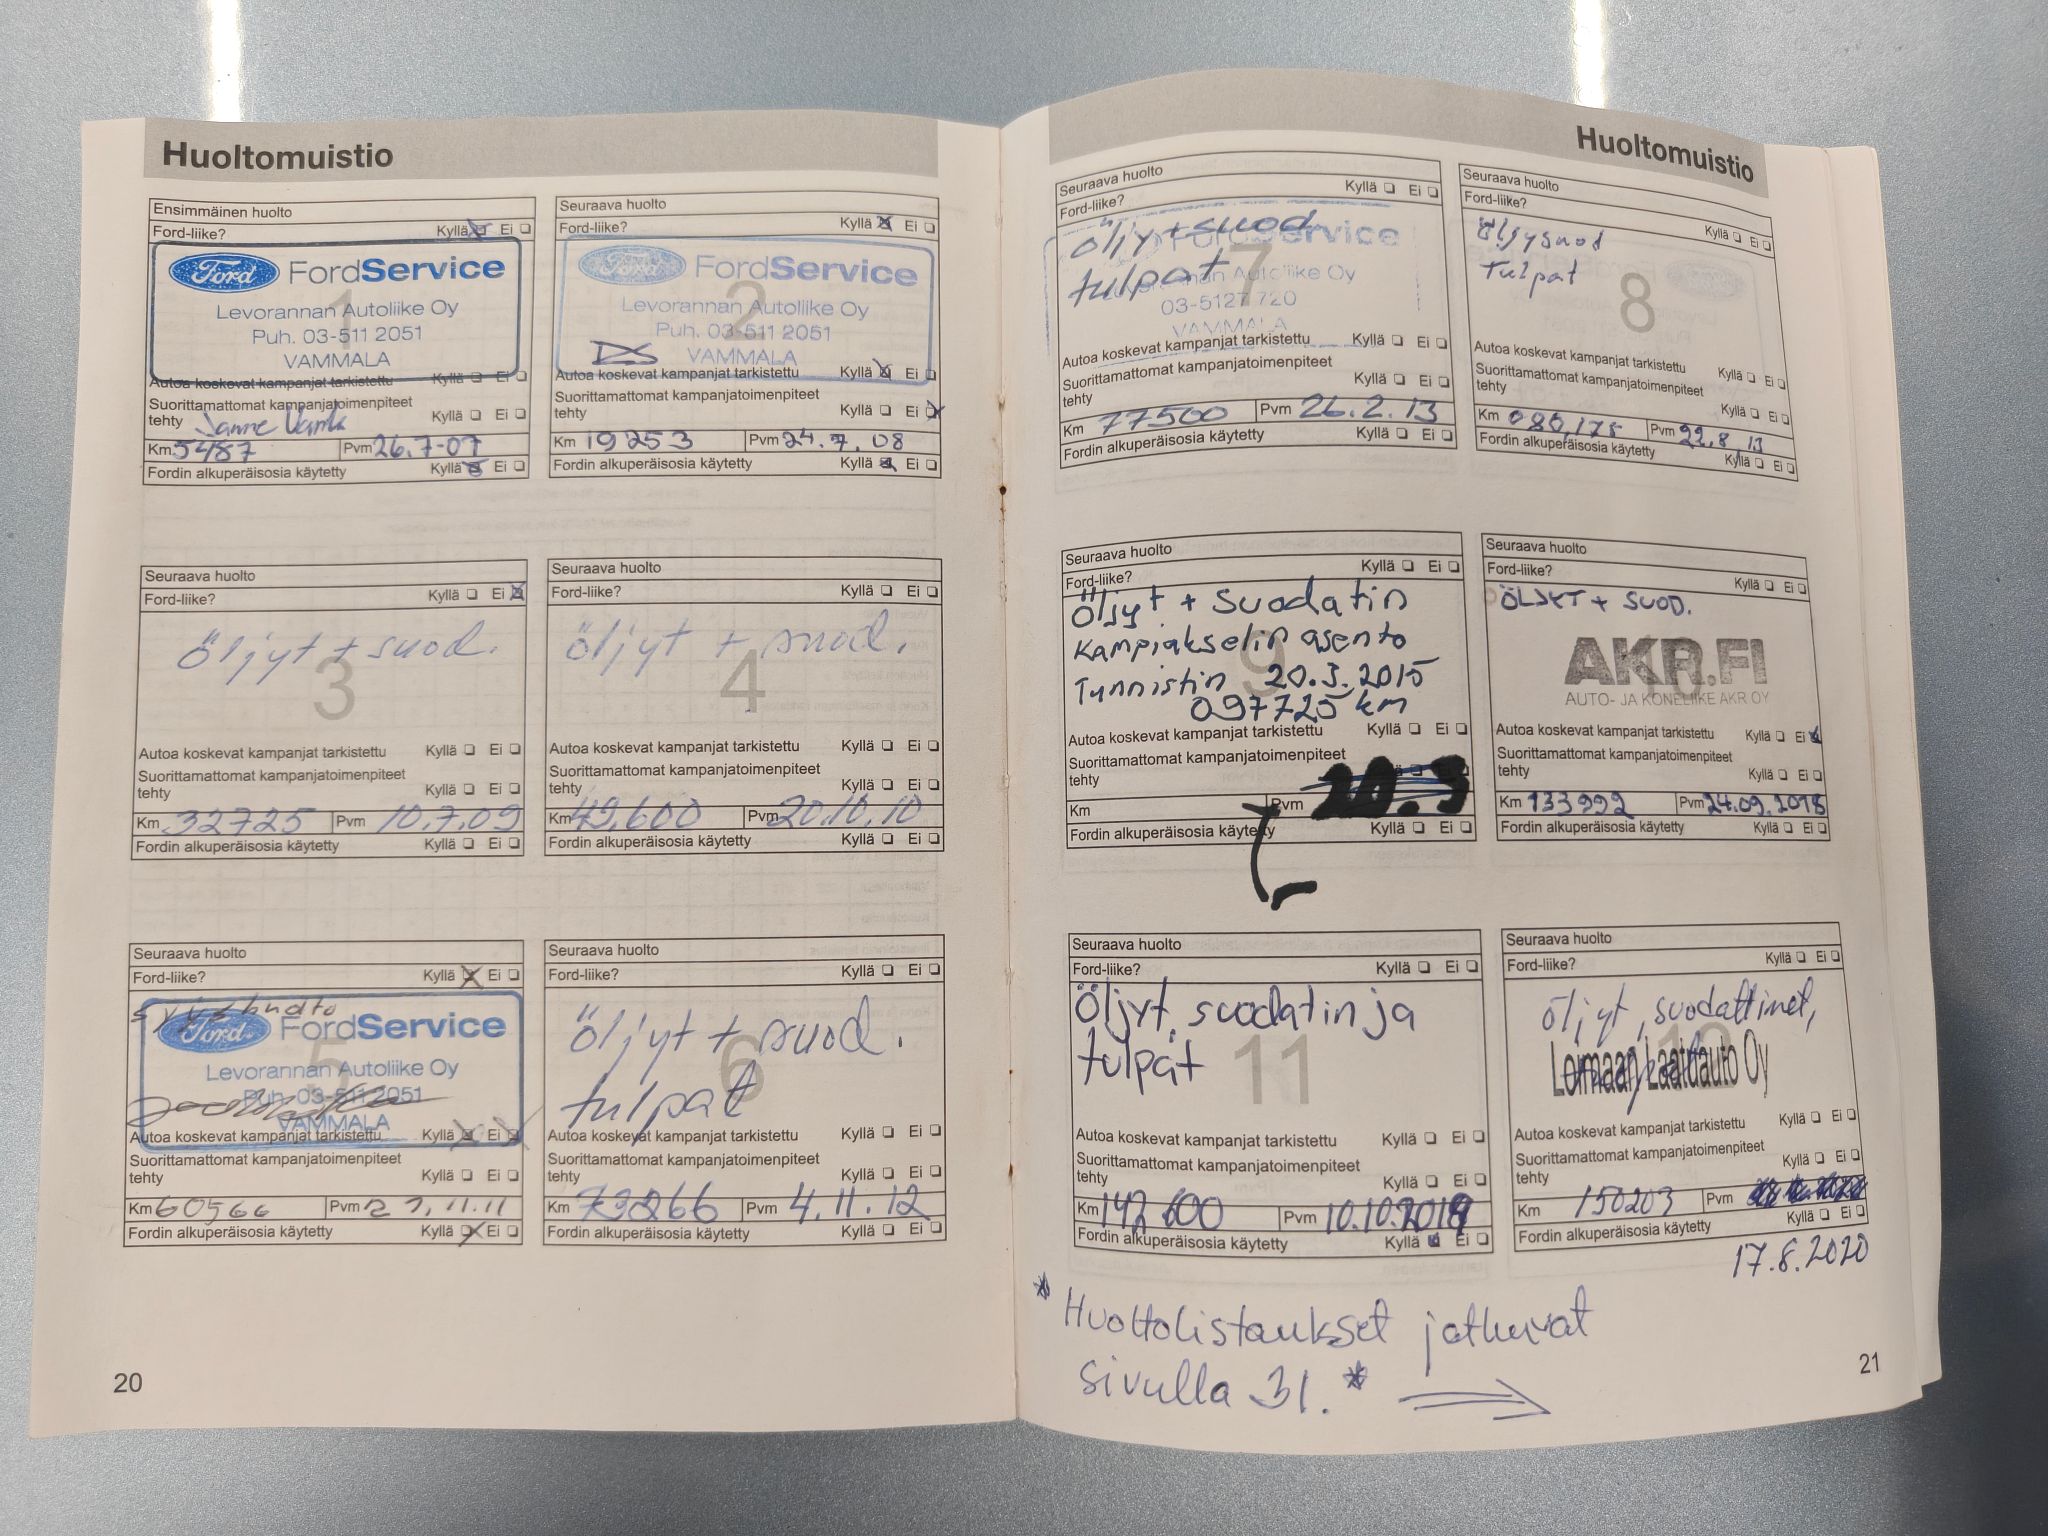 Huoltomuistio
Ensimmäinen huolto
Ford-liike? Kyllä Ei
Ford FordService
1
Levorannan Autoliike Oy
Puh. 03-511 2051
VAMMALA
Autoa koskevat kampanjat tarkistettu Kyllä Ei
Suorittamattomat kampanjatoimenpiteet
tehty Kyllä Ei
Km 5487 Pvm 26.7-07
Fordin alkuperäisosia käytetty Kyllä Ei
Seuraava huolto
Ford-liike? Kyllä Ei
Ford FordService
2
Levorannan Autoliike Oy
Puh. 03-511 2051
VAMMALA
Autoa koskevat kampanjat tarkistettu Kyllä Ei
Suorittamattomat kampanjatoimenpiteet
tehty Kyllä Ei
Km 19253 Pvm 24.7.08
Fordin alkuperäisosia käytetty Kyllä Ei
Seuraava huolto
Ford-liike? Kyllä Ei
öljyt + suod.
3
Autoa koskevat kampanjat tarkistettu Kyllä Ei
Suorittamattomat kampanjatoimenpiteet
tehty Kyllä Ei
Km 32725 Pvm 10.7.09
Fordin alkuperäisosia käytetty Kyllä Ei
Seuraava huolto
Ford-liike? Kyllä Ei
öljyt + suod.
4
Autoa koskevat kampanjat tarkistettu Kyllä Ei
Suorittamattomat kampanjatoimenpiteet
tehty Kyllä Ei
Km 49.600 Pvm 20.10.10
Fordin alkuperäisosia käytetty Kyllä Ei
Seuraava huolto
Ford-liike? Kyllä Ei
Ford FordService
5
Levorannan Autoliike Oy
Puh. 03-511 2051
VAMMALA
Autoa koskevat kampanjat tarkistettu Kyllä Ei
Suorittamattomat kampanjatoimenpiteet
tehty Kyllä Ei
Km 60566 Pvm
Fordin alkuperäisosia käytetty Kyllä Ei
Seuraava huolto
Ford-liike? Kyllä Ei
öljyt + suod.
6
tulpat
Autoa koskevat kampanjat tarkistettu Kyllä Ei
Suorittamattomat kampanjatoimenpiteet
tehty Kyllä Ei
Km Pvm 4.11.12
Fordin alkuperäisosia käytetty Kyllä Ei
20
Huoltomuistio
Seuraava huolto
Ford-liike? Kyllä Ei
öljy + suod
FordService
tulpat
7
Levorannan Autoliike Oy
03-5127 720
VAMMALA
Autoa koskevat kampanjat tarkistettu Kyllä Ei
Suorittamattomat kampanjatoimenpiteet
tehty Kyllä Ei
Km 77500 Pvm 26.2.13
Fordin alkuperäisosia käytetty Kyllä Ei
Seuraava huolto
Ford-liike? Kyllä Ei
Öljysuod
Tulpat
8
Autoa koskevat kampanjat tarkistettu Kyllä Ei
Suorittamattomat kampanjatoimenpiteet
tehty Kyllä Ei
Km 080,175 Pvm 22.8.13
Fordin alkuperäisosia käytetty Kyllä Ei
Seuraava huolto
Ford-liike? Kyllä Ei
Öljyt + suodatin
Kampiakselin asento
9
Tunnistin 20.3.2015
097725 km
Autoa koskevat kampanjat tarkistettu Kyllä Ei
Suorittamattomat kampanjatoimenpiteet
tehty
Km Pvm 20.3
Fordin alkuperäisosia käytetty Kyllä Ei
Seuraava huolto
Ford-liike? Kyllä Ei
ÖLJYT + SUOD.
AKR.FI
10
AUTO- JA KONELIIKE AKR OY
Autoa koskevat kampanjat tarkistettu Kyllä Ei
Suorittamattomat kampanjatoimenpiteet
tehty Kyllä Ei
Km 133992 Pvm 24.09.2018
Fordin alkuperäisosia käytetty Kyllä Ei
Seuraava huolto
Ford-liike? Kyllä Ei
Öljyt, suodatin ja
tulpat
11
Autoa koskevat kampanjat tarkistettu Kyllä Ei
Suorittamattomat kampanjatoimenpiteet
tehty Kyllä Ei
Km 142 600 Pvm 10.10.2019
Fordin alkuperäisosia käytetty Kyllä Ei
Seuraava huolto
Ford-liike? Kyllä Ei
öljyt, suodattimet,
12
Loimaan Laatuauto Oy
Autoa koskevat kampanjat tarkistettu Kyllä Ei
Suorittamattomat kampanjatoimenpiteet
tehty Kyllä Ei
Km 150203 Pvm
Fordin alkuperäisosia käytetty Kyllä Ei
17.8.2020
* Huoltolistaukset jatkuvat
sivulla 31. *
21